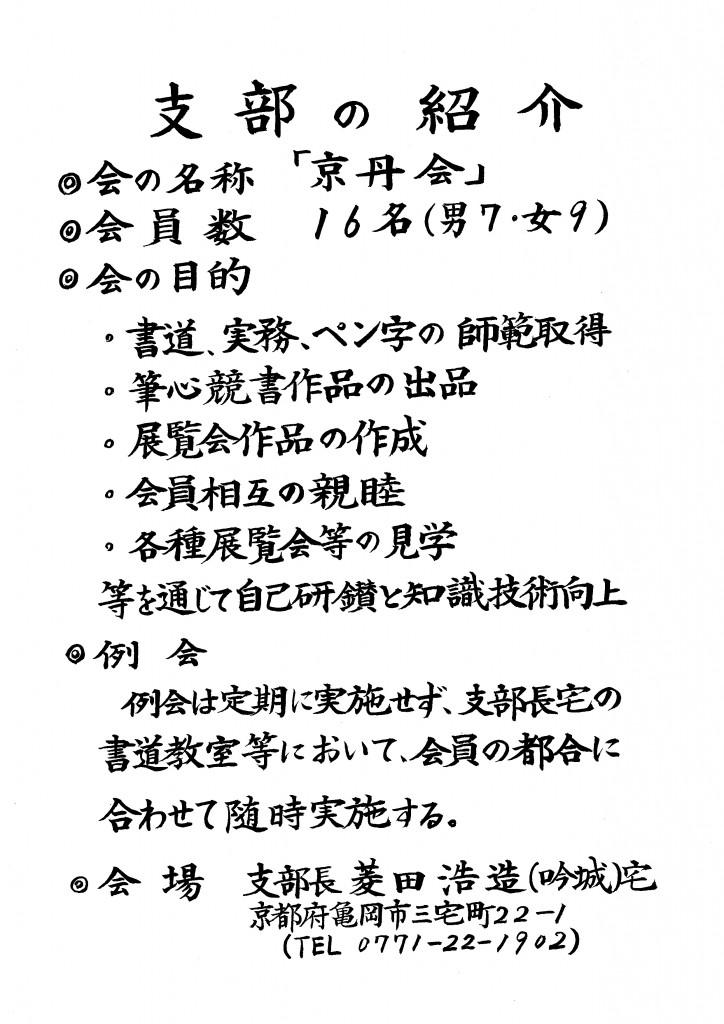 支部の紹介
◎会の名称 「京丹会」
◎会員数 16名(男7・女9)
◎会の目的
・書道、実務、ペン字の師範取得
・筆心競書作品の出品
・展覧会作品の作成
・会員相互の親睦
・各種展覧会等の見学
等を通じて自己研鑚と知識技術向上
◎例会
例会は定期に実施せず、支部長宅の
書道教室等において、会員の都合に
合わせて随時実施する。
◎会場 支部長 菱田浩造(吟城)宅
京都府亀岡市三宅町22-1
(TEL 0771-22-1902)